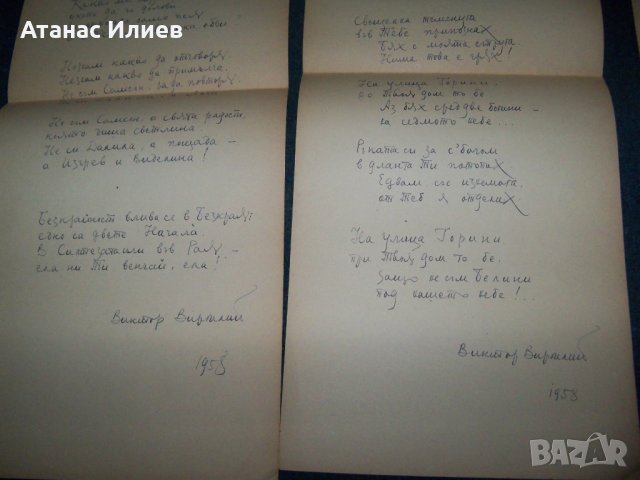 Атанас Илиев
Незнам какво да отговоря,
Незнам какво да примълча.
Не съм Самсон, за да повторя
Не съм Самсон, а свята радост,
която чиша светлина
Не си Далила, а пощада –
а Изгрев и Виделина!
Безкрайност влива се в Безкрая:
едно са двете Начала.
В Рая,
ела ни Ти венчай, ела!
Виктор Виргилий
1958
Свещенна теменуга
във Тебе припознах
Бях с моята
Нима това е грях!
На улица Горини,
до Твоя дом то бе
Аз бях сред две богини –
на седмото небе...
Ръката си за сбогом
в дланта Ти потопих
Едвам със изнемога,
от Теб я отделих
На улица Горини
при Твоя дом то бе.
Защо не съм Белини
под нашето небе!..
Виктор Виргилий
1958
BAZAR